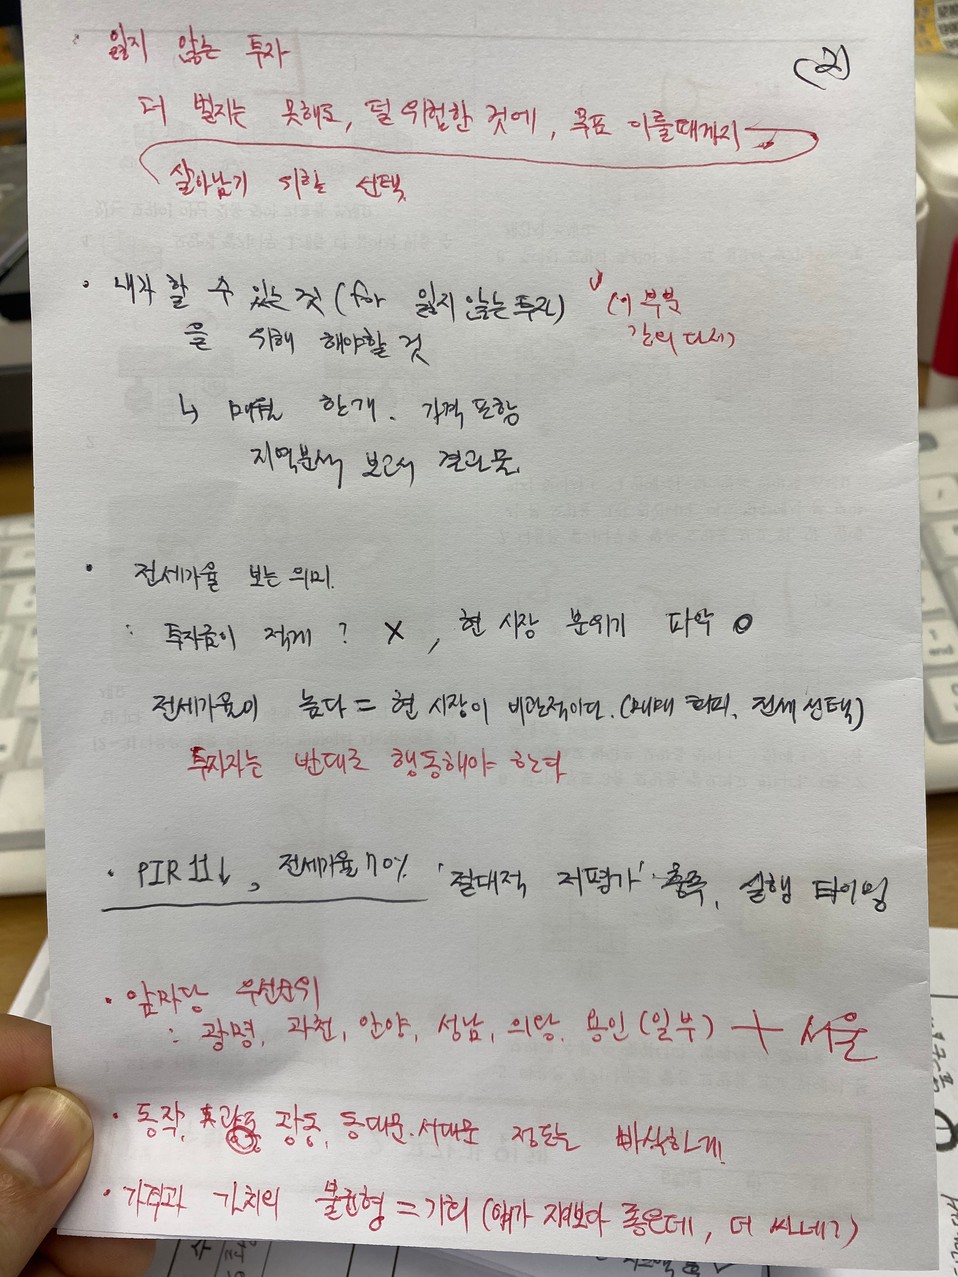 (2)
· 잃지 않는 투자
더 벌지는 못해도, 덜 위험한 것에, 목표 이룰때까지
살아남기 위한 선택
· 내가 할 수 있는 것 (for 잃지 않는 투자)
을 위해 해야할 것
(이 부분
강의 다시)
↳ 매월 한개. 가격 포함
지역분석 보고서 결과물.
· 전세가율 보는 의미.
: 투자금이 적게? X, 현 시장 분위기 파악 O
전세가율이 높다 = 현 시장이 비관적이다. (매매 회피, 전세 선택)
투자자는 반대로 행동해야 한다
· PIR 11↓, 전세가율 70% '절대적 저평가' 충족, 실행 타이밍
· 앞마당 우선순위
: 광명, 과천, 안양, 성남, 의왕, 용인 (일부) + 서울
· 동작, 강동, 동대문. 서대문 정도는 빠삭하게!
· 가격과 가치의 불균형 = 기회 (얘가 쟤보다 좋은데, 더 싸네?)